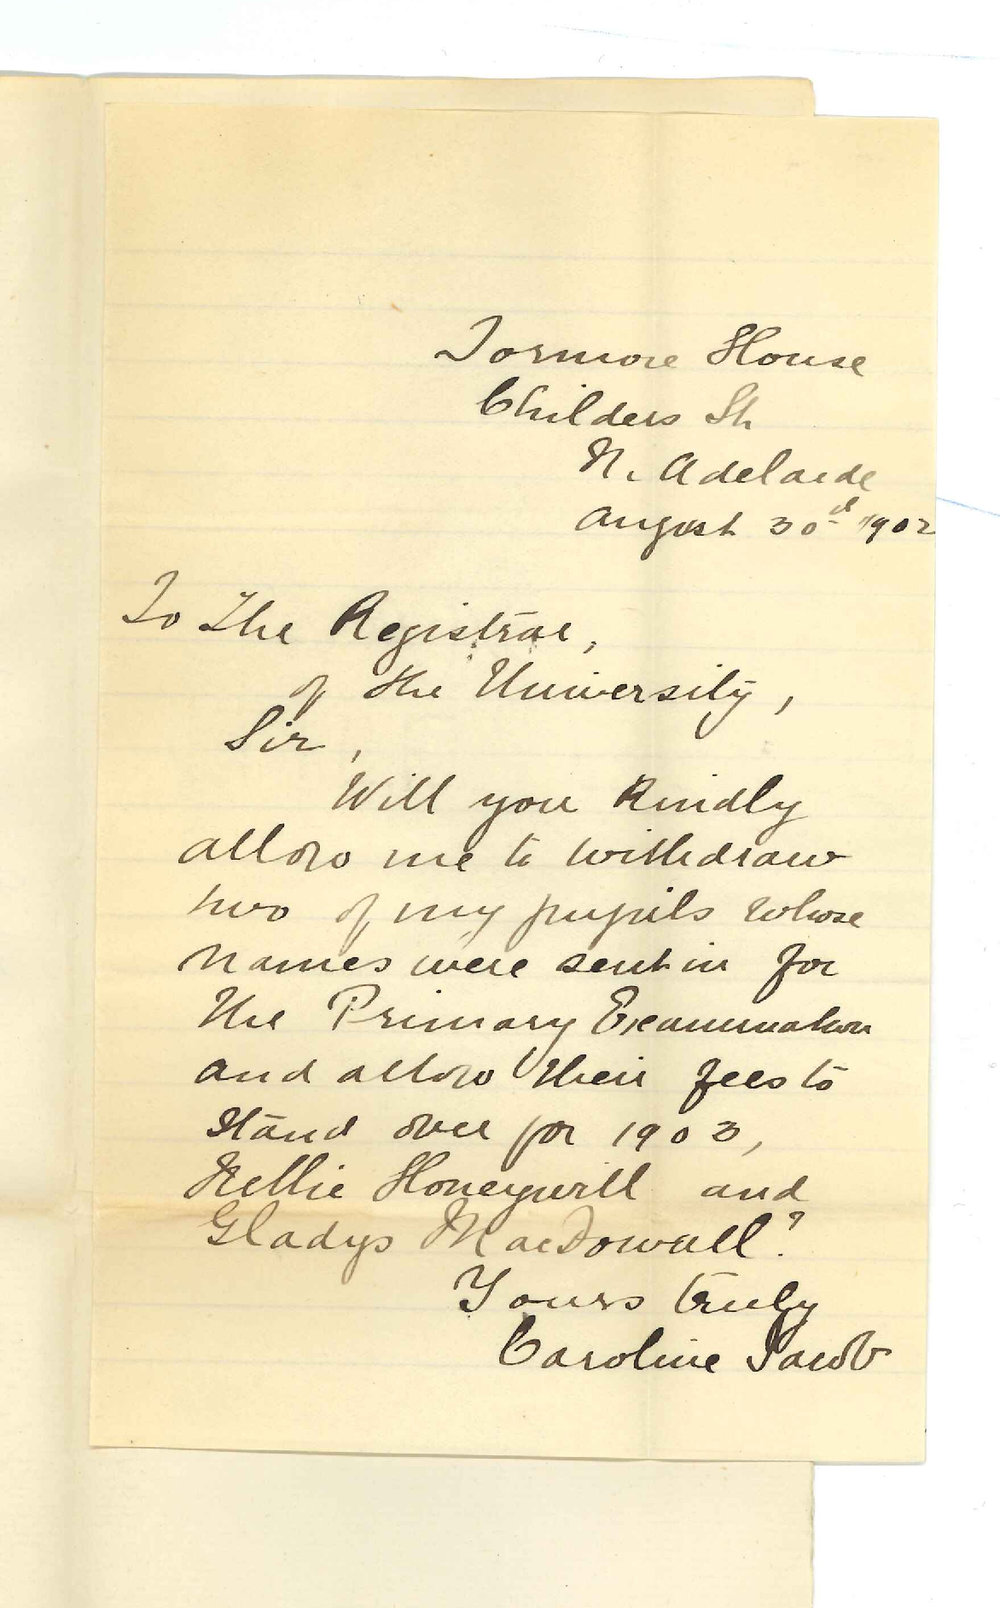 Tormore House
Childers St
N. Adelaide
August 30th 1902
To The Registrar,
of the University,
Sir,
Will you kindly
allow me to withdraw
two of my pupils whose
names were sent in for
the Primary Examination
and allow their fees to
stand over for 1903,
Nellie Honeywill and
Gladys MacDowall?
Yours truly
Caroline Jacob